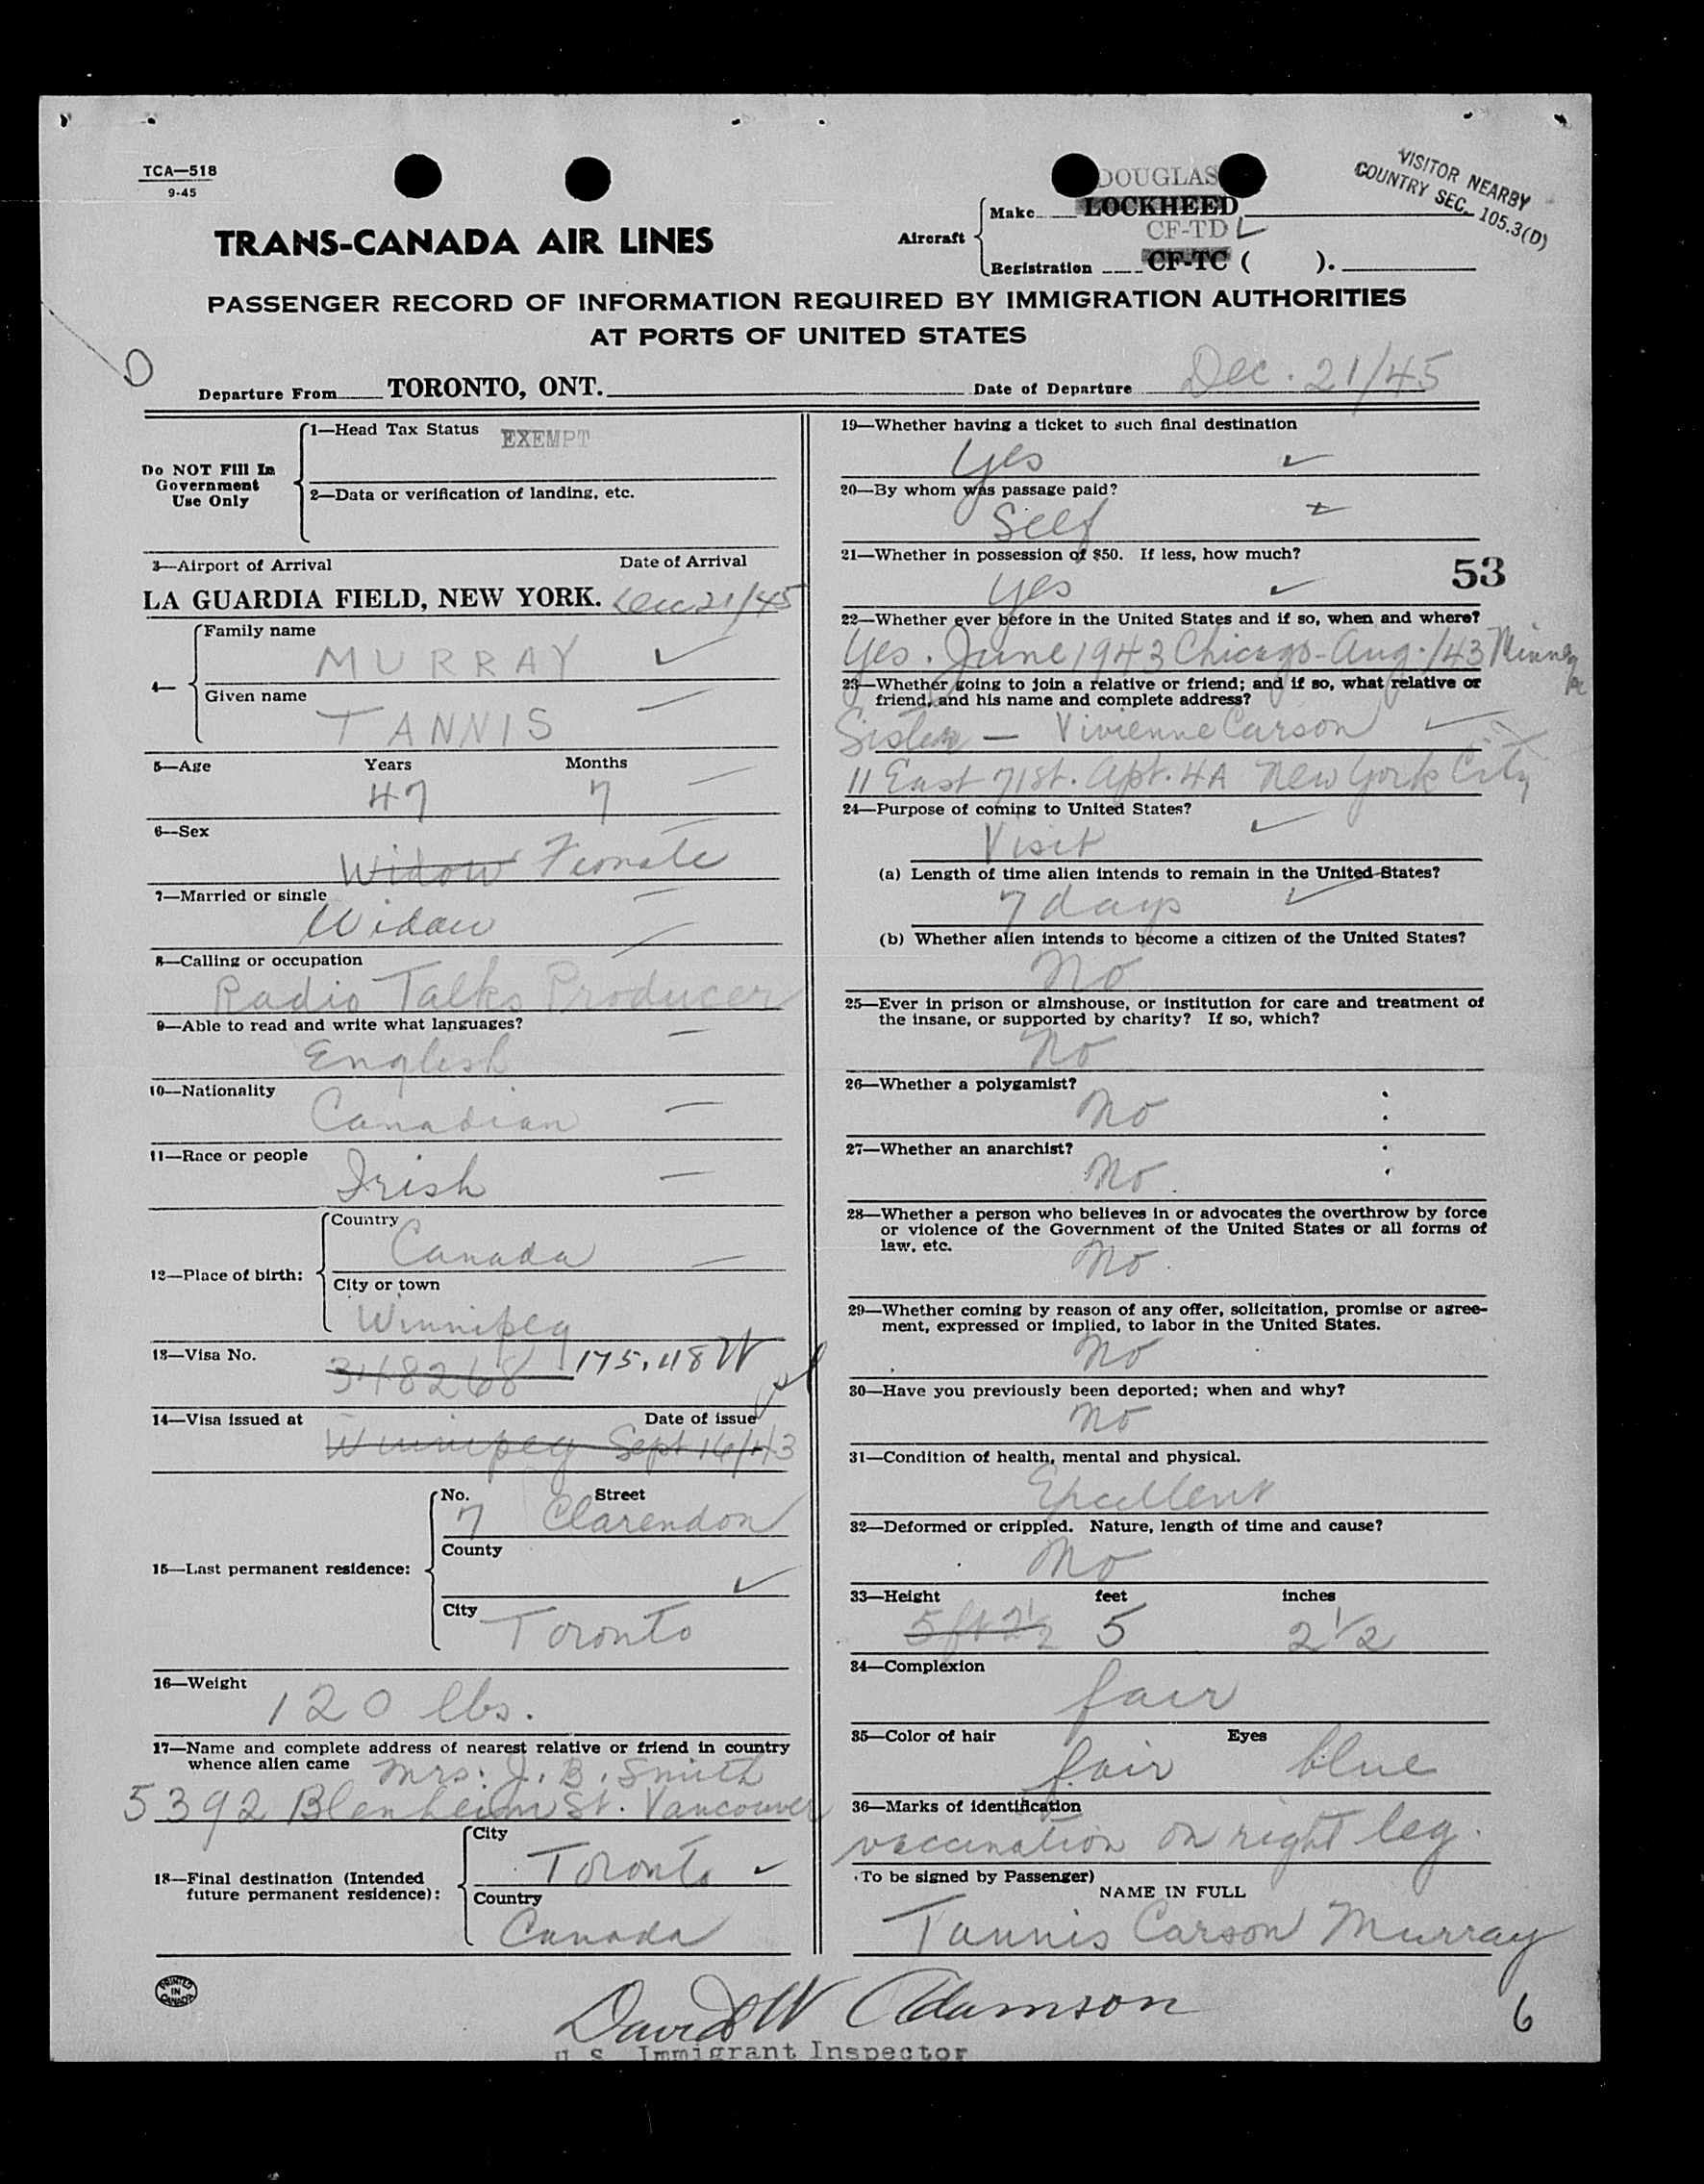 TCA—518
9-45
VISITOR NEARBY
COUNTRY SEC. 105.3(D)
DOUGLAS
Make LOCKHEED
TRANS-CANADA AIR LINES
Aircraft
CF-TDL
Registration CF-TC ( ).
PASSENGER RECORD OF INFORMATION REQUIRED BY IMMIGRATION AUTHORITIES
AT PORTS OF UNITED STATES
Departure From TORONTO, ONT. Date of Departure Dec. 21/45
Do NOT Fill In
Government
Use Only
1—Head Tax Status EXEMPT
2—Data or verification of landing, etc.
3—Airport of Arrival Date of Arrival
LA GUARDIA FIELD, NEW YORK. Dec 21/45
4—
Family name
MURRAY
Given name
TANNIS
5—Age Years Months
47 7
6—Sex
Widow Female
7—Married or single
Widow
8—Calling or occupation
Radio Talks Producer
9—Able to read and write what languages?
English
10—Nationality
Canadian
11—Race or people
Irish
12—Place of birth:
Country
Canada
City or town
Winnipeg
13—Visa No.
348268 175.118 W
14—Visa issued at Date of issue
Winnipeg Sept 16/43
15—Last permanent residence:
No. Street
7 Clarendon
County
City
Toronto
16—Weight
120 lbs.
17—Name and complete address of nearest relative or friend in country
whence alien came Mrs. J. B. Smith
5392 Blenheim St. Vancouver
18—Final destination (Intended
future permanent residence):
City
Toronto
Country
Canada
19—Whether having a ticket to such final destination
Yes
20—By whom was passage paid?
Self
21—Whether in possession of $50. If less, how much?
Yes
53
22—Whether ever before in the United States and if so, when and where?
Yes. June 1943 Chicago - Aug. /43
23—Whether going to join a relative or friend; and if so, what relative or
friend, and his name and complete address?
Sister — Vivienne Carson
11 East 71 st. Apt. 4A New York City
24—Purpose of coming to United States?
Visit
(a) Length of time alien intends to remain in the United States?
7 days
(b) Whether alien intends to become a citizen of the United States?
No
25—Ever in prison or almshouse, or institution for care and treatment of
the insane, or supported by charity? If so, which?
No
26—Whether a polygamist?
No
27—Whether an anarchist?
No.
28—Whether a person who believes in or advocates the overthrow by force
or violence of the Government of the United States or all forms of
law, etc.
No.
29—Whether coming by reason of any offer, solicitation, promise or agree-
ment, expressed or implied, to labor in the United States.
No
30—Have you previously been deported; when and why?
No
31—Condition of health, mental and physical.
Excellent
32—Deformed or crippled. Nature, length of time and cause?
No
33—Height feet inches
5 ft 2½ 5 2 ½
34—Complexion
fair
35—Color of hair Eyes
fair blue
36—Marks of identification
vaccination on right leg.
To be signed by Passenger)
NAME IN FULL
Tannis Carson Murray
PRINTED
IN
CANADA
David W Adamson
U. S. Immigrant Inspector
6